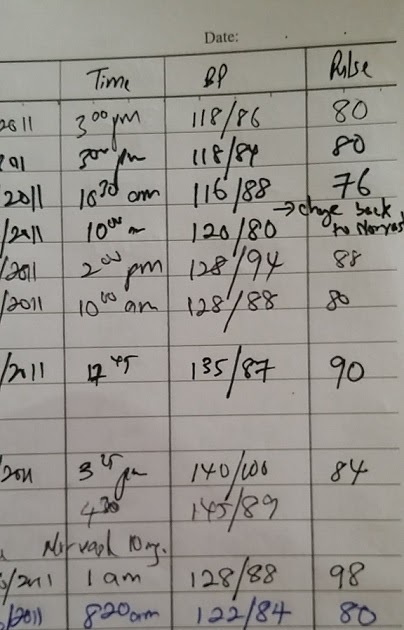 Date:
Time BP Pulse
2011 3⁰⁰ pm 118/86 80
201 3⁰⁰ pm 118/84 80
2011 10³⁰ am 116/88 76
→ change back to Norvasc
/2011 10⁰⁰ 120/80
/2011 2⁰⁰ pm 128/94 88
/2011 10⁰⁰ am 128/88 80
/2011 12⁴⁵ 135/87 90
2011 3²⁵ pm 140/100 84
4³⁰ 145/89
10 mg.
/2011 1 am 128/88 98
/2011 8²⁰ am 122/84 80